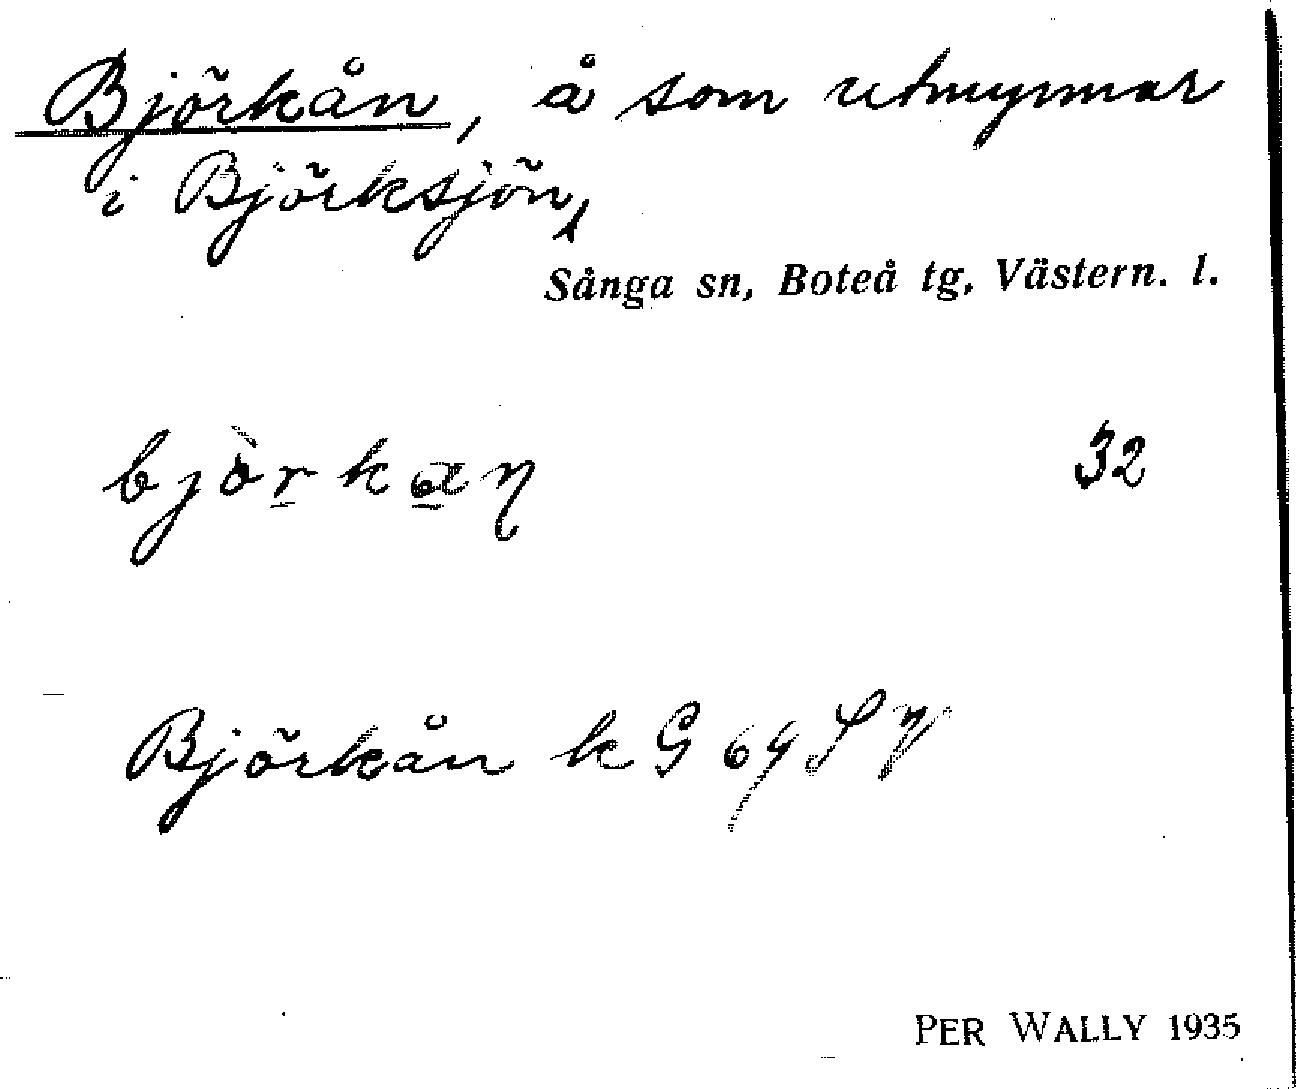 Björkån, å som utmynnar
i Björksjön,
Sånga sn, Boteå tg, Västern. l.
björkan 32
Björkån k G 64
PER WALLY 1935